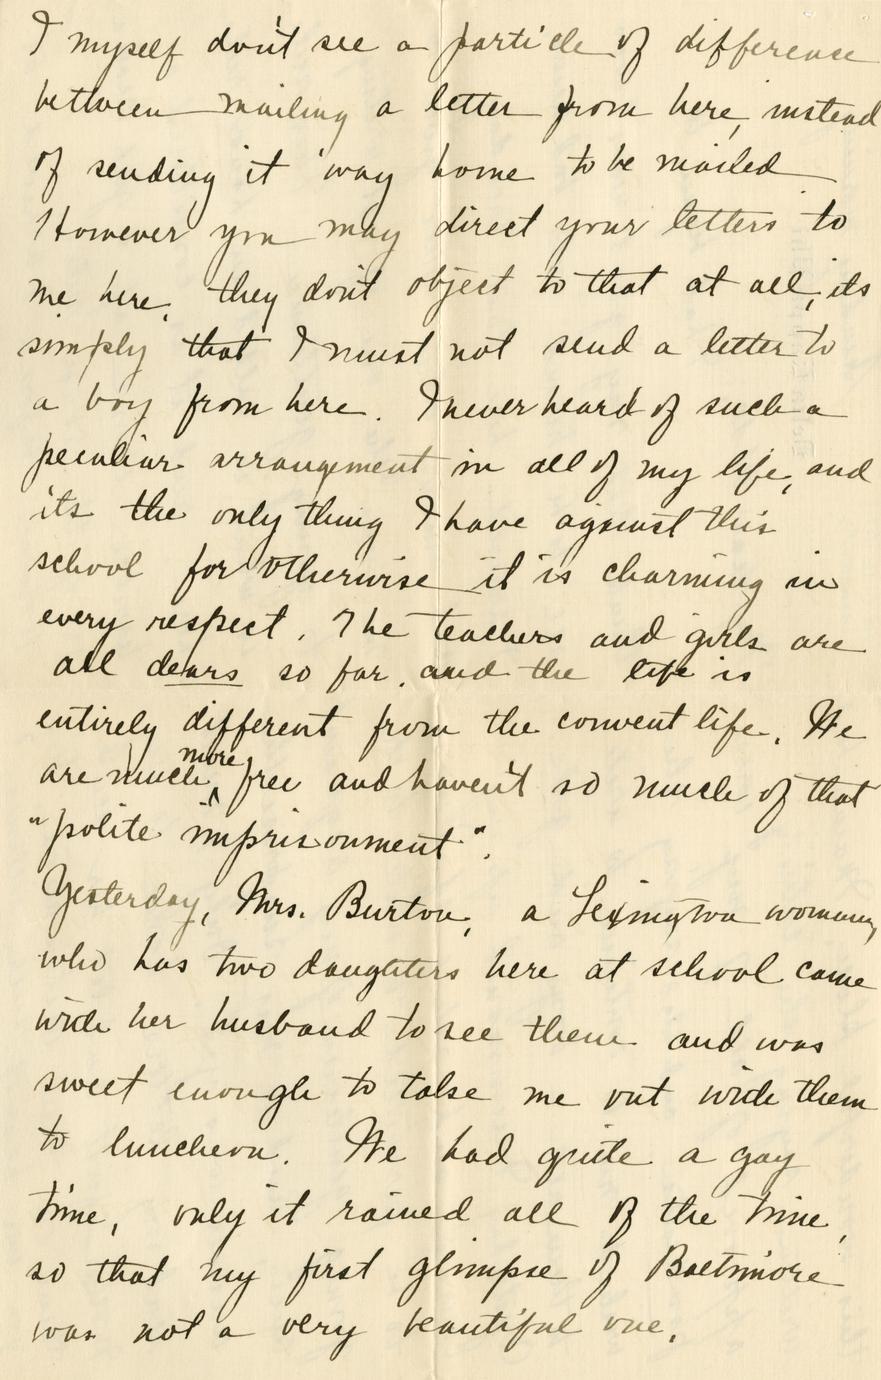 I myself don't see a particle of difference
between mailing a letter from here, instead
of sending it 'way home to be mailed
However you may direct your letters to
me here, they don't object to that at all, its
simply that I must not send a letter to
a boy from here. I never heard of such a
peculiar arrangement in all of my life, and
its the only thing I have against this
school for otherwise it is charming in
every respect. The teachers and girls are
all dears so far, and the life is
entirely different from the convent life. We
are much more free and haven't so much of that
"polite imprisonment".
Yesterday, Mrs. Burton, a Lexington woman,
who has two daughters here at school came
with her husband to see them and was
sweet enough to take me out with them
to luncheon. We had quite a gay
time, only it rained all of the time,
so that my first glimpse of Baltimore
was not a very beautiful one.